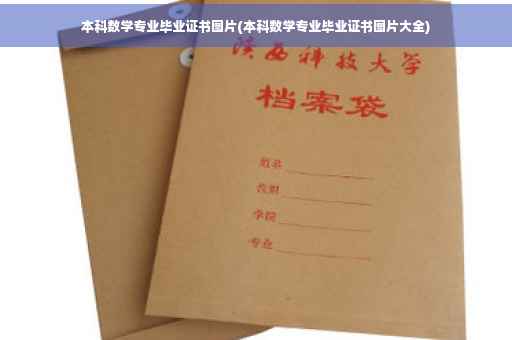 本科数学专业毕业证书图片(本科数学专业毕业证书图片大全)
陕西科技大学
档案袋
姓名
学院
专业